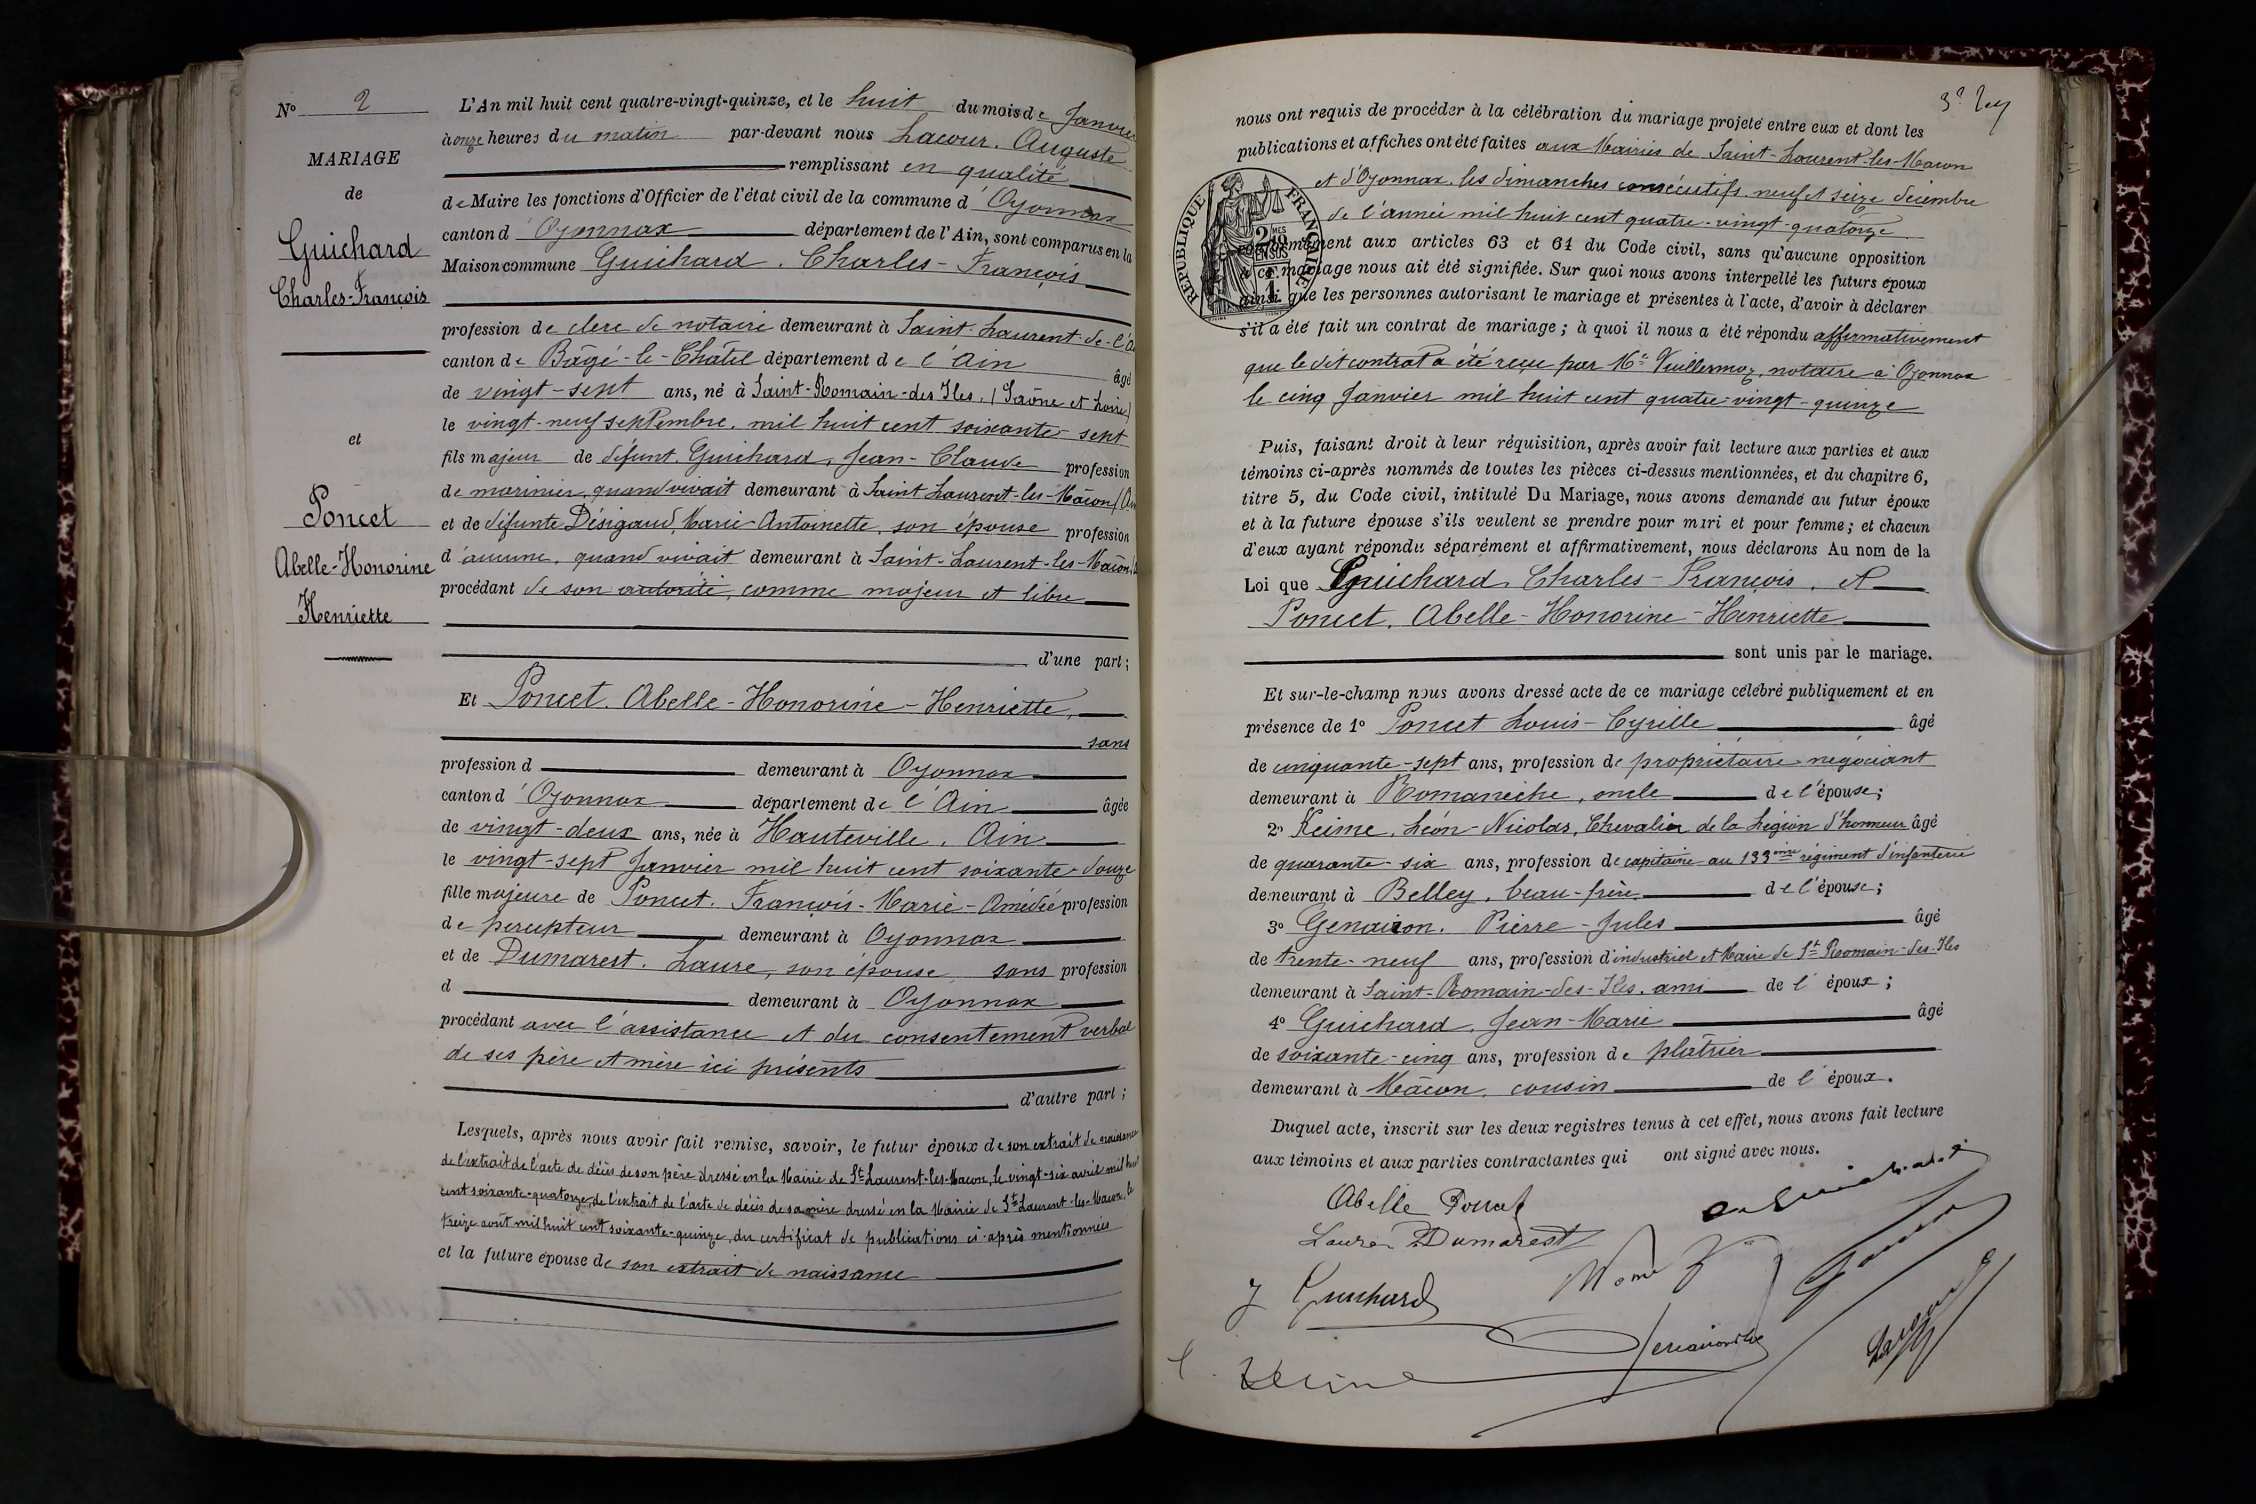 N° 2
MARIAGE
de
Guichard
Charles-François
et
Poncet
Abelle-Honorine
Henriette
L'An mil huit cent quatre-vingt-quinze, et le huit du mois de Janvier
à onze heures du matin par-devant nous Lacour. Auguste
remplissant en qualité
de Maire les fonctions d'Officier de l'état civil de la commune d'Oyonnax
canton d'Oyonnax département de l'Ain, sont comparus en la
Maison commune Guichard. Charles-François
profession de clerc de notaire demeurant à Saint-Laurent-de-l'Ai
canton de Bâgé-le-Châtel département de l'Ain âgé
de vingt-sept ans, né à Saint-Romain-des-Iles. (Saône et Loire)
le vingt-neuf septembre. mil huit cent soixante-sept
fils majeur de défunt. Guichard, Jean-Claude profession
de marinier, quand vivait demeurant à Saint Laurent-les-Mâcon (Ain
et de défunte Désigaud, Marie-Antoinette, son épouse profession
d'aucune, quand vivait demeurant à Saint-Laurent-les-Mâcon
procédant de son autorité, comme majeur et libre
d'une part;
Et Poncet. Abelle-Honorine-Henriette,
sans
profession d demeurant à Oyonnax
canton d'Oyonnax département de l'Ain âgée
de vingt-deux ans, née à Hauteville. Ain
le vingt-sept Janvier mil huit cent soixante-douze
fille majeure de Poncet. François-Marie-Amédée profession
de percepteur demeurant à Oyonnax
et de Dumarest. Laure, son épouse sans profession
d demeurant à Oyonnax
procédant avec l'assistance et du consentement verbal
de ses père et mère ici présents
d'autre part;
Lesquels, après nous avoir fait remise, savoir, le futur époux de son extrait de naissance
de l'extrait de l'acte de décès de son père dressé en la Mairie de St Laurent-les-Macon, le vingt-six avril mil huit
cent soixante-quatorze, de l'extrait de l'acte de décès de sa mère dressé en la Mairie de St Laurent-les-Macon, le
treize août mil huit cent soixante-quinze, du certificat de publications ci-après mentionnées
et la future épouse de son extrait de naissance
nous ont requis de procéder à la célébration du mariage projeté entre eux et dont les
publications et affiches ont été faites aux Mairies de Saint-Laurent-les-Macon
et d'Oyonnax. les dimanches consécutifs neuf et seize décembre
de l'année mil huit cent quatre-vingt-quatorze
conformément aux articles 63 et 64 du Code civil, sans qu'aucune opposition
à ce mariage nous ait été signifiée. Sur quoi nous avons interpellé les futurs époux
ainsi que les personnes autorisant le mariage et présentes à l'acte, d'avoir à déclarer
s'il a été fait un contrat de mariage; à quoi il nous a été répondu affirmativement
que le dit contrat a été reçu par Me Vuillermoz, notaire à Oyonnax
le cinq Janvier mil huit cent quatre-vingt-quinze
RÉPUBLIQUE FRANÇAISE
2 MES 10 EN SUS
Puis, faisant droit à leur réquisition, après avoir fait lecture aux parties et aux
témoins ci-après nommés de toutes les pièces ci-dessus mentionnées, et du chapitre 6,
titre 5, du Code civil, intitulé Du Mariage, nous avons demandé au futur époux
et à la future épouse s'ils veulent se prendre pour mari et pour femme; et chacun
d'eux ayant répondu séparément et affirmativement, nous déclarons Au nom de la
Loi que Guichard, Charles-François. et
Poncet. Abelle-Honorine-Henriette
sont unis par le mariage.
Et sur-le-champ nous avons dressé acte de ce mariage célébré publiquement et en
présence de 1° Poncet Louis-Cyrille âgé
de cinquante-sept ans, profession de propriétaire-négociant
demeurant à Romanèche, oncle de l'épouse;
2° Keime, Léon-Nicolas, Chevalier de la Légion d'honneur âgé
de quarante-six ans, profession de capitaine au 133ème régiment d'infanterie
demeurant à Belley, beau-frère de l'épouse;
3° Genairon. Pierre-Jules âgé
de trente-neuf ans, profession d'industriel et Maire de St Romain-des-Iles
demeurant à Saint-Romain-des-Iles. ami de l'époux;
4° Guichard, Jean-Marie âgé
de soixante-cinq ans, profession de plâtrier
demeurant à Mâcon. cousin de l'époux.
Duquel acte, inscrit sur les deux registres tenus à cet effet, nous avons fait lecture
aux témoins et aux parties contractantes qui ont signé avec nous.
Abelle Poncet
Laure Dumarest
J Guichard